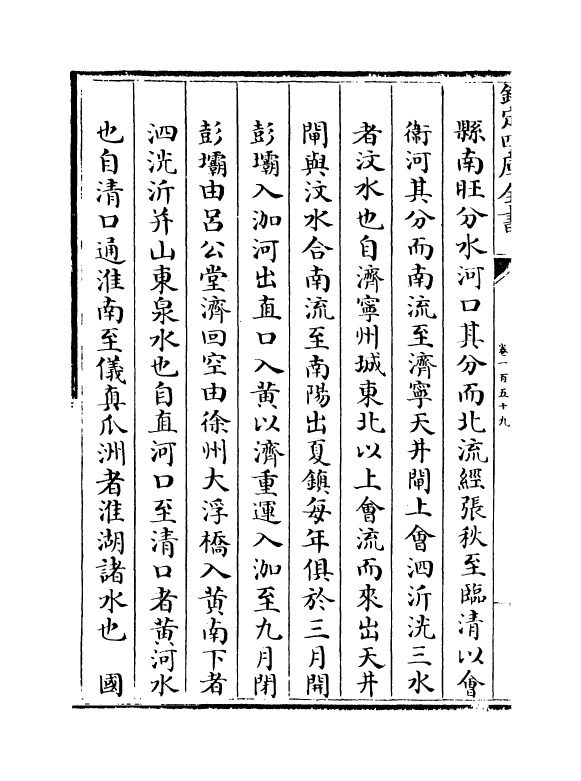 欽定四庫全書
卷一百五十九
縣南旺分水河口其分而北流經張秋至臨清以會
衛河其分而南流至濟寧天井閘上會泗沂洸三水
者汶水也自濟寧州城東北以上會流而來出天井
閘與汶水合南流至南陽出夏鎮每年俱於三月開
彭壩入泇河出直口入黄以濟重運入泇至九月閉
彭壩由呂公堂濟回空由徐州大浮橋入黄南下者
泗洸沂并山東泉水也自直河口至清口者黄河水
也自清口通淮南至儀真瓜洲者淮湖諸水也　國